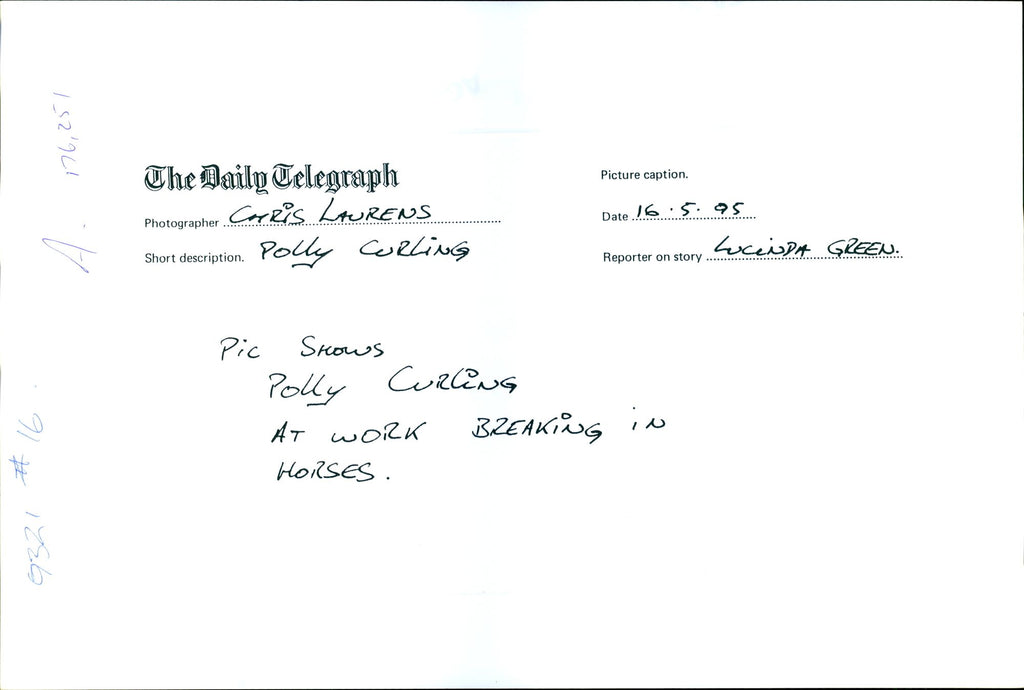 The Daily Telegraph
Picture caption.
Photographer CHRIS LAURENS
Date 16.5.95
Short description. POLLY CURLING
Reporter on story LUCINDA GREEN.
PIC SHOWS
POLLY CURLING
AT WORK BREAKING IN
HORSES.
A. 176,251
9321 # 16